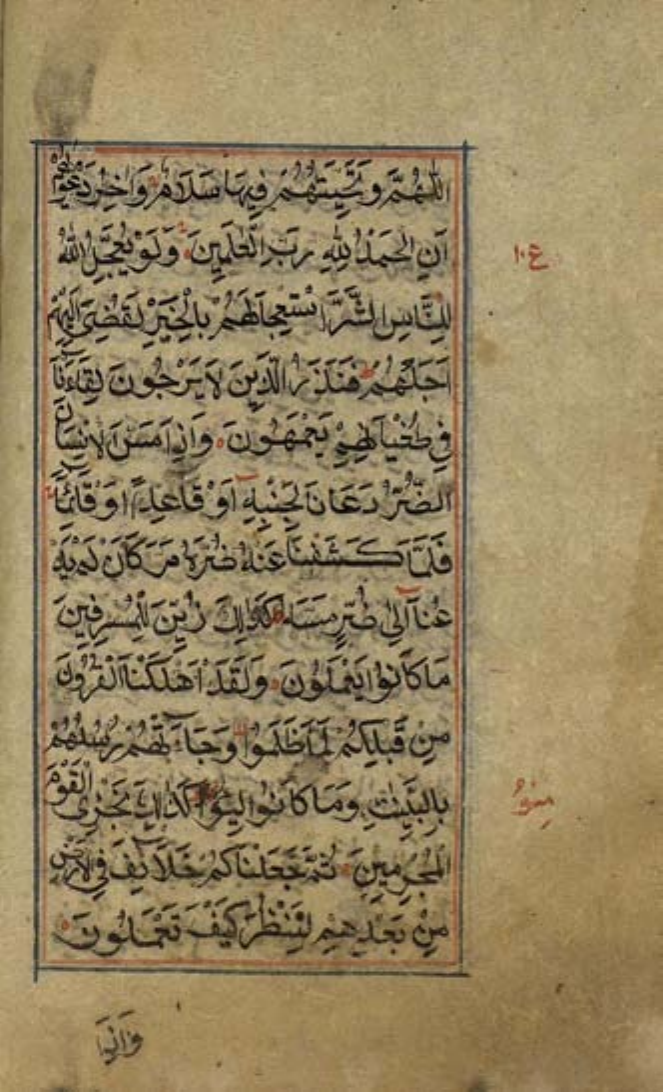 اللَّهُمَّ وَتَحِيَّتُهُمْ فِيهَا سَلَامٌ وَاٰخِرُ دَعْوٰيهُمْ
اَنِ الْحَمْدُ لِلّٰهِ رَبِّ الْعٰلَمِينَ وَلَوْ يُعَجِّلُ اللّٰهُ
ع ١٠
لِلنَّاسِ الشَّرَّ اسْتِعْجَالَهُمْ بِالْخَيْرِ لَقُضِىَ اِلَيْهِمْ
اَجَلُهُمْ فَنَذَرُ الَّذِينَ لَا يَرْجُونَ لِقَاءَنَا
فِى طُغْيَانِهِمْ يَعْمَهُونَ وَاِذَا مَسَّ الْاِنْسَانَ
الضُّرُّ دَعَانَا لِجَنْبِهِ اَوْ قَاعِدًا اَوْ قَائِمًا
فَلَمَّا كَشَفْنَا عَنْهُ ضُرَّهُ مَرَّ كَاَنْ لَمْ يَدْ
عُنَا اِلٰى ضُرٍّ مَسَّهُ كَذٰلِكَ زُيِّنَ لِلْمُسْرِفِينَ
مَا كَانُوا يَعْمَلُونَ وَلَقَدْ اَهْلَكْنَا الْقُرُونَ
مِنْ قَبْلِكُمْ لَمَّا ظَلَمُوا وَجَاءَتْهُمْ رُسُلُهُمْ
بِالْبَيِّنٰتِ وَمَا كَانُوا لِيُؤْمِنُوا كَذٰلِكَ نَجْزِى الْقَوْمَ
الْمُجْرِمِينَ ثُمَّ جَعَلْنَاكُمْ خَلَائِفَ فِى الْاَرْضِ
مِنْ بَعْدِهِمْ لِنَنْظُرَ كَيْفَ تَعْمَلُونَ